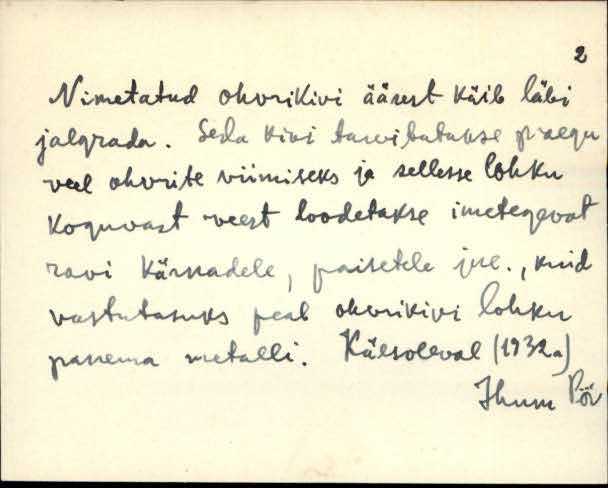 2
Nimetatud ohvrikivi äärest käib läbi
jalgrada. Seda kivi tarvitatakse praegu
veel ohvrite viimiseks ja sellesse lohku
koguvast veest loodetakse imetegevat
ravi kärnadele, paisetele jne., kuid
vastutasuks peab ohvrikivi lohku
panema metalli. Käesoleval (1932a)